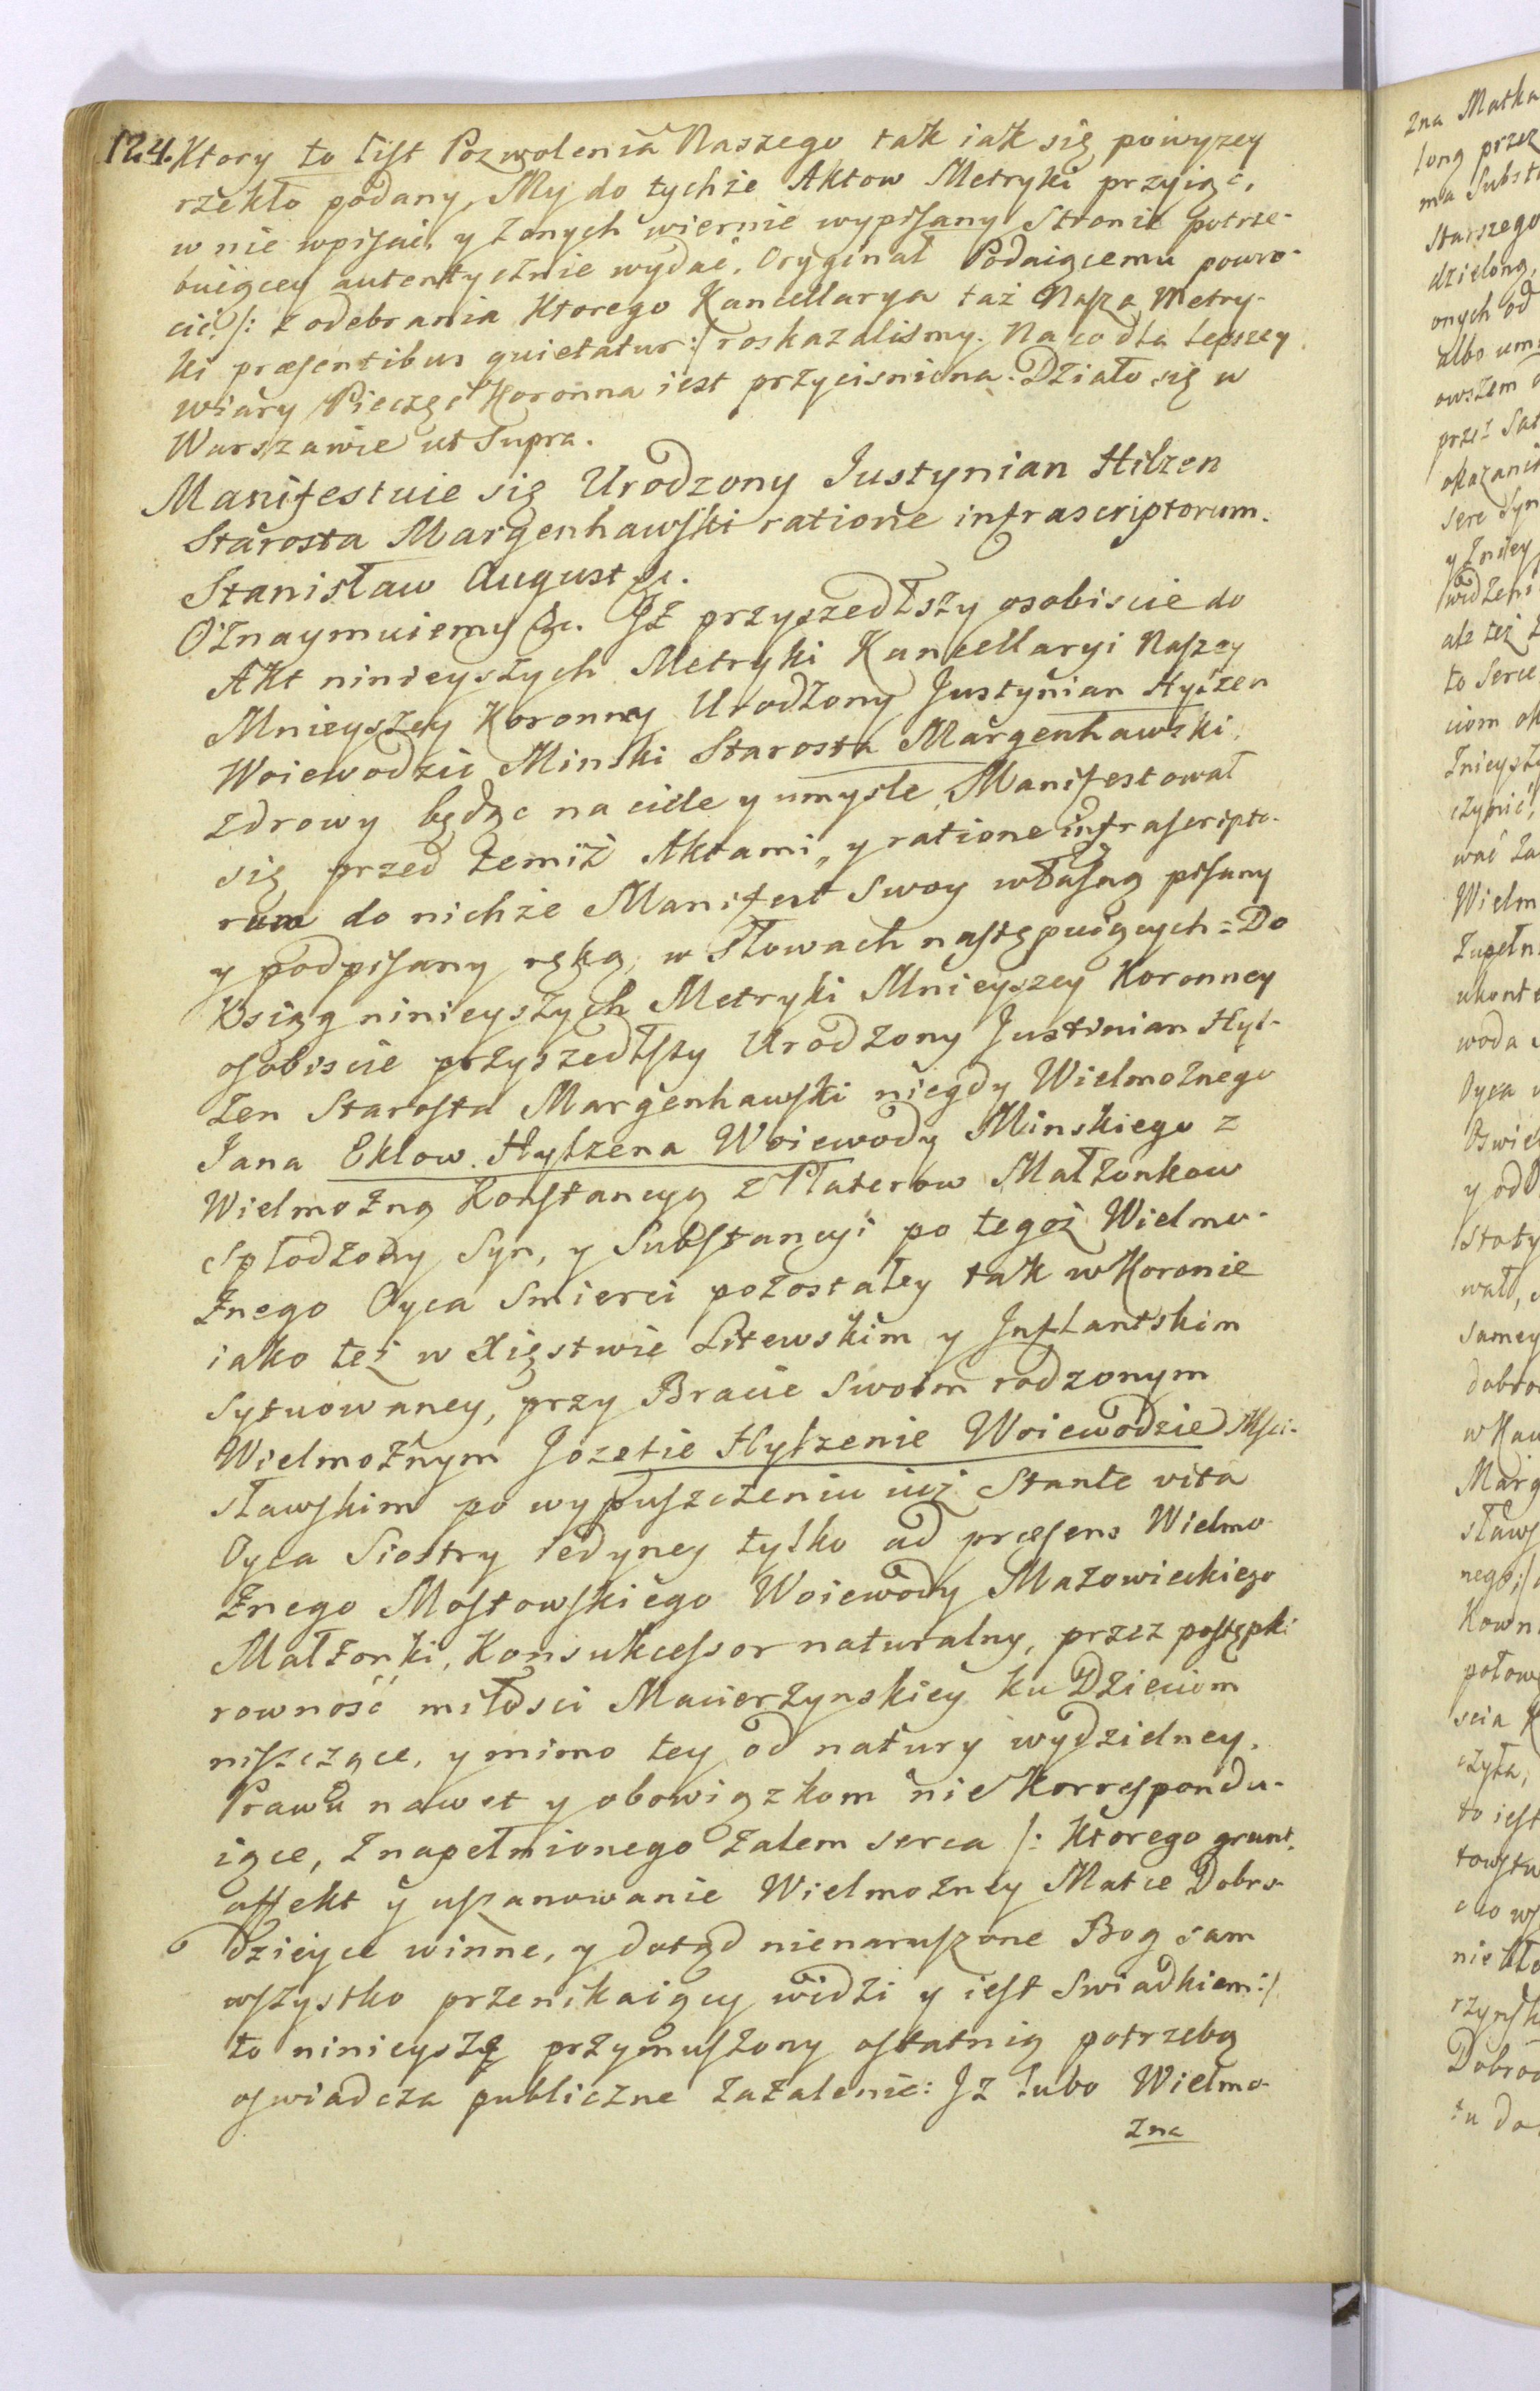 124. Ktory to list Pozwolenia Naszego tak iak się powyzey
rzekło podany, My do tychże Aktow Metryki przyiąć,
w nie wpisać, y z onych wiernie wypisany Stronie potrze-
buiącey autentycznie wydać, Oryginał Podaiącemu powro-
cić /: z odebrania Ktorego Kancellarya taż Nasza Metry-
ki præsentibus quietatur :/ roskazalismy. Na co dla lepszey
wiary Pieczęć Koronna iest przycisniona. Działo się w
Warszawie ut Supra.
Manifestuie się Urodzony Justynian Hilzen
Starosta Margenhawski ratione infrascriptorum.
Stanisław August &c.
Oznaymuiemy &c. Iż przyszedłszy osobiscie do
Akt ninieyszych Metryki Kancellaryi Naszey
Mnieyszey Koronney Urodzony Justynian Hylzen
Woiewodzic Minski Starosta Margenhawski,
zdrowy będąc na ciele y umysle, Manifestował
się przed temiż Aktami, y ratione infrascripto-
rum do nichże Manifest swoy własną pisany
y podpisany ręką, w Słowach następuiących = Do
Ksiąg ninieyszych Metryki Mnieyszey Koronney
osobiscie przyszedłszy Urodzony Justinian Hyl-
zen Starosta Margenhawski niegdy Wielmożnego
Jana Eklow. Hylzena Woiewody Minskiego z
Wielmożną Konstancyą z Platerow Małzonkow
spłodzony Syn, y Substancyi po tegoż Wielmo-
żnego Oyca Smierci pozostałey tak w Koronie
iako też w Xięstwie Litewskim y Inflantskim
sytuowaney, przy Bracie Swoim rodzonym
Wielmożnym Jozefie Hylzenie Woiewodzie Msci-
sławskim po wypuszczeniu iuż Stante vita
Oyca Siostry iedyney tylko ad præsens Wielmo-
żnego Mostowskiego Woiewody Mazowieckiego
Małżonki, Konsukcessor naturalny, przez postępki
rowność miłosci Macierzynskiey ku Dzieciom
niszczące, y mimo tey od natury wydzielney,
Prawu nawet y obowiązkom nie Korrespondu-
iące, z napełnionego żalem serca /: Ktorego grunt,
affekt y uszanowanie Wielmożney Matce Dobro-
dzieyce winne, y dotąd nienaruszone Bog sam
wszystko przenikaiący widzi y iest Swiadkiem :/
to ninieysze przymuszony ostatnią potrzebą
oswiadcza publiczne zażalenie: Iż lubo Wielmo-
żna